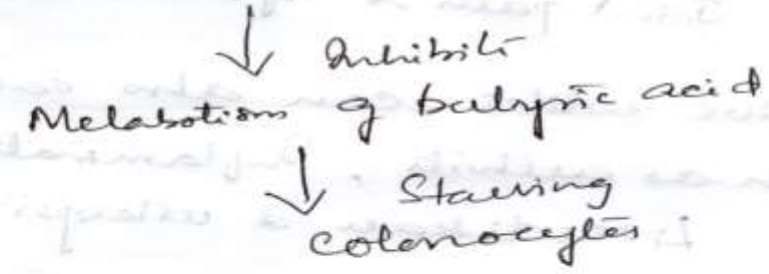 ↓ Inhibits
Metabolism of butyric acid
↓ Starving
colonocytes.